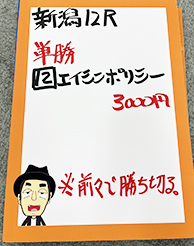 新潟12R
単勝
12エイシンポリシー
3000円
※前々で勝ち切る。